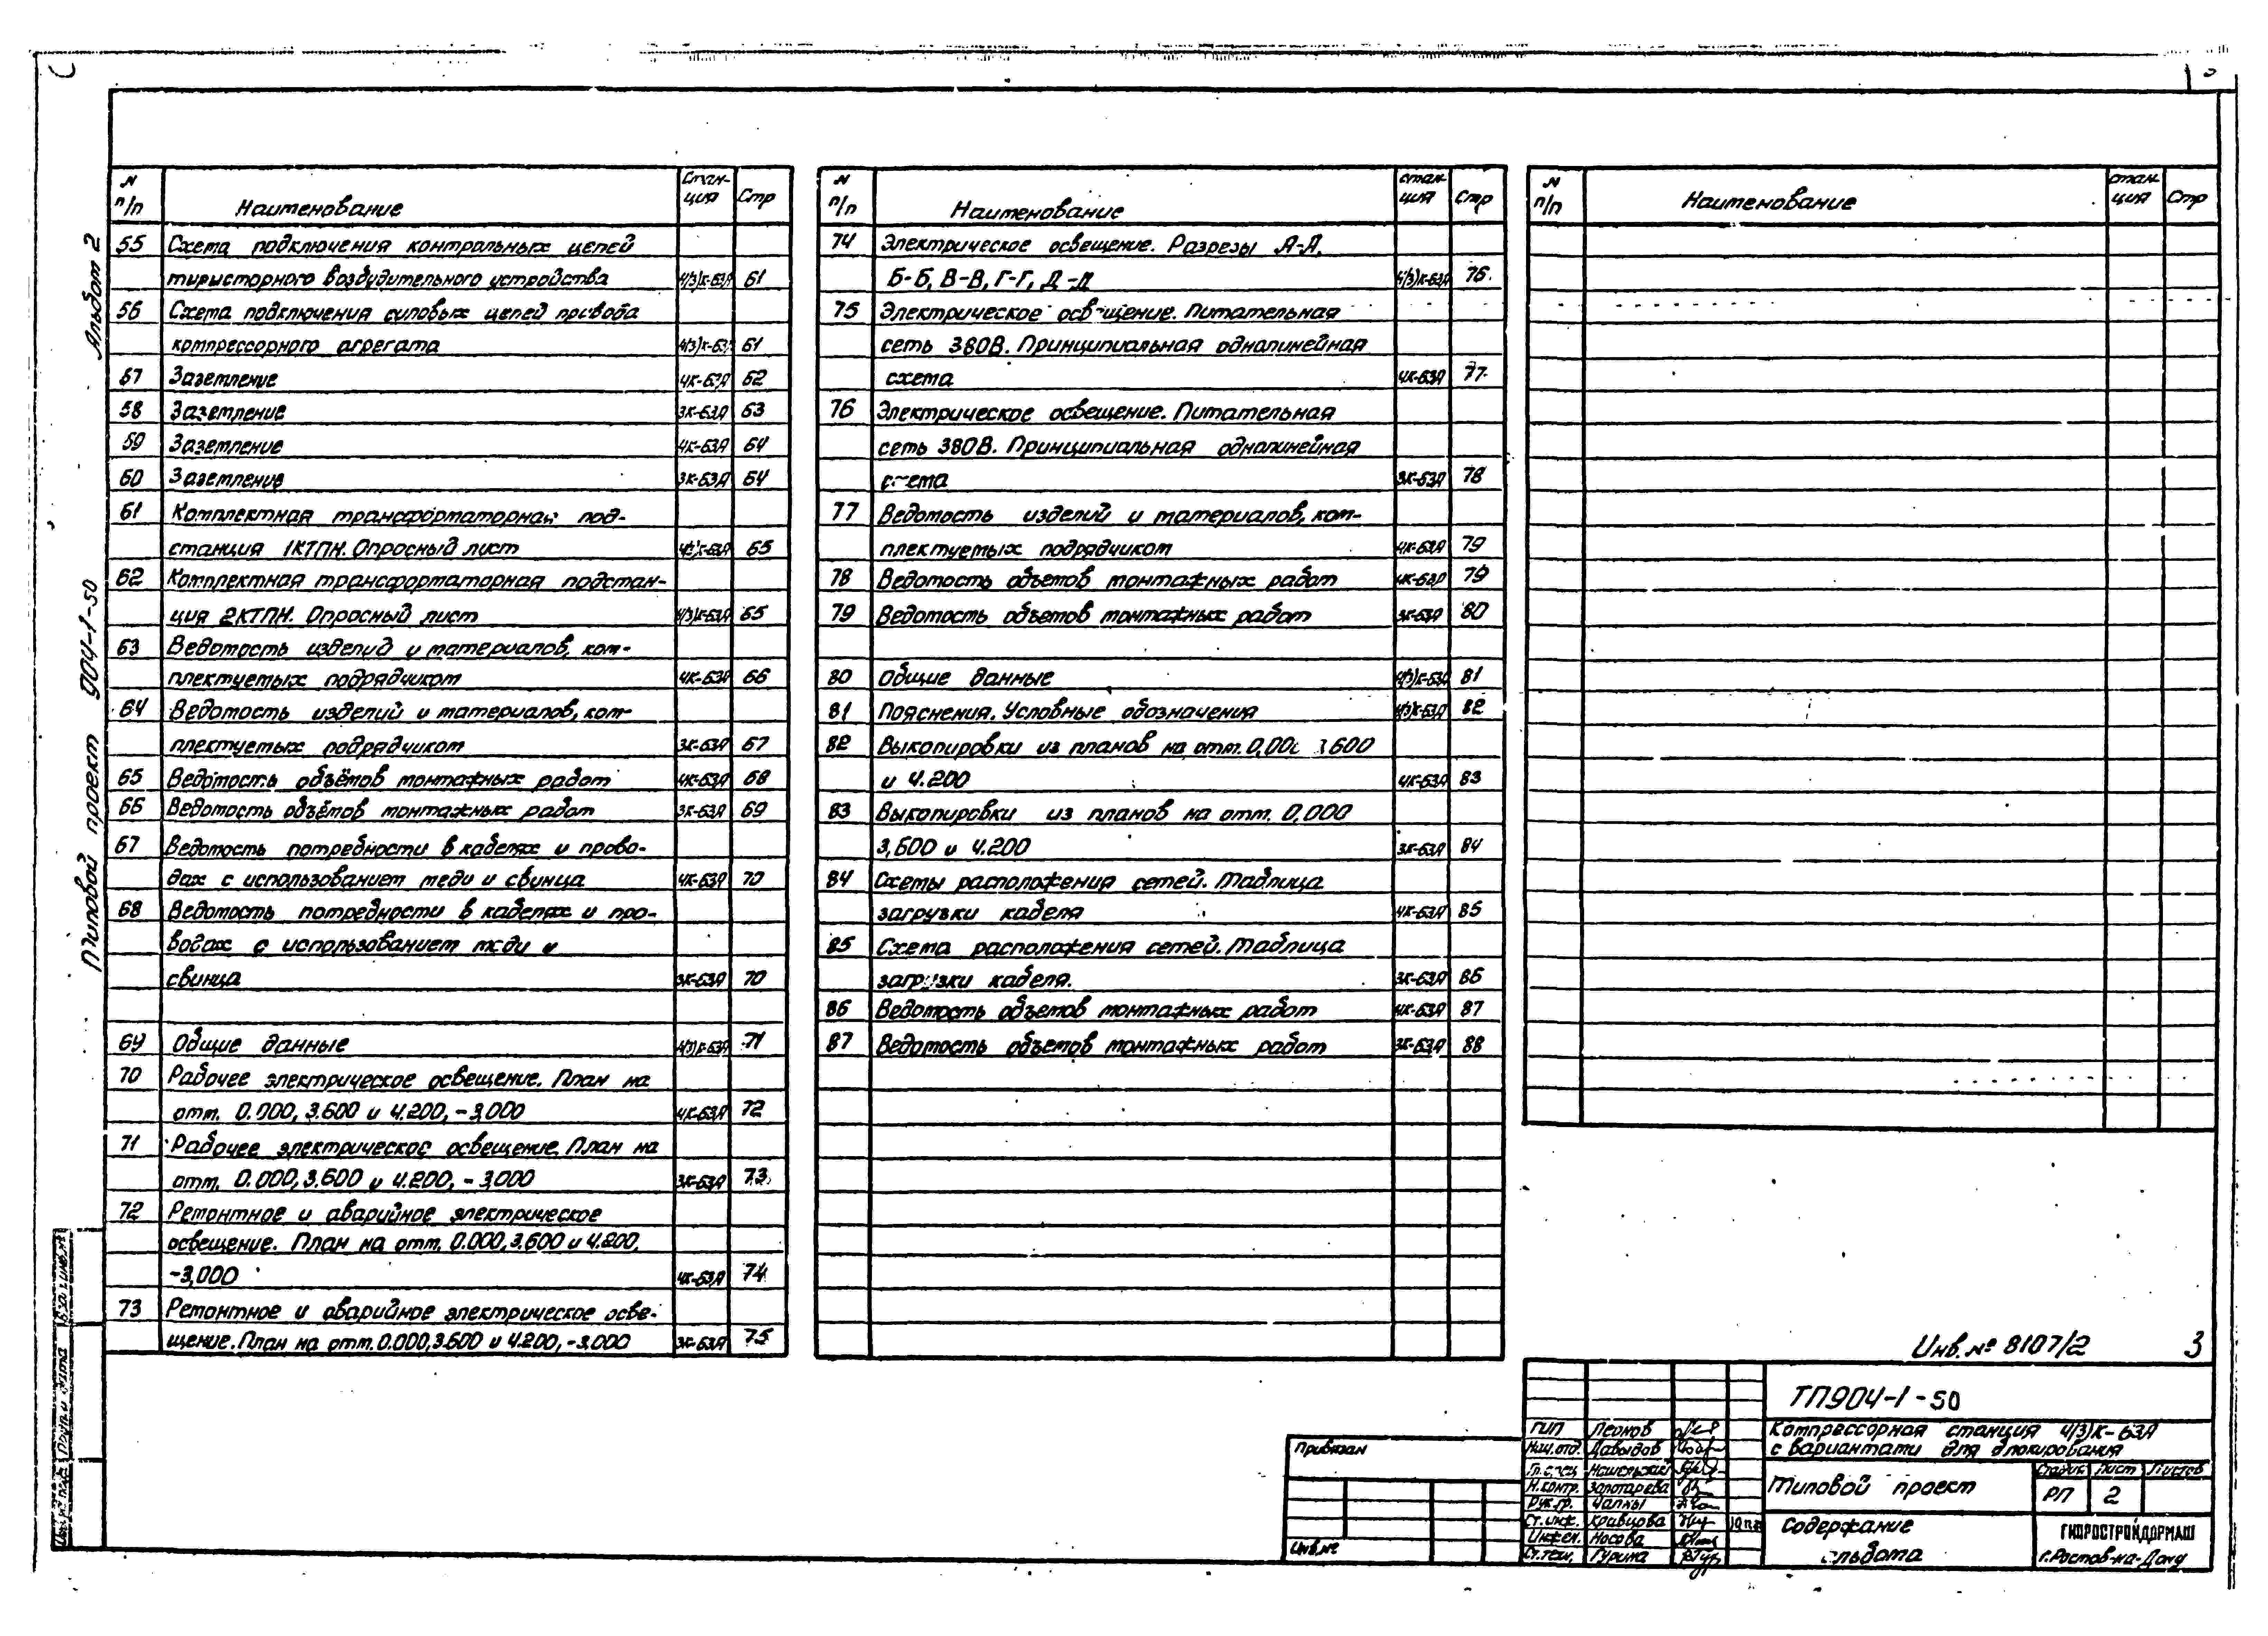 Альбом 2
Типовой проект 904-1-50
N п/п Наименование Стан-ция Стр
55 Схема подключения контрольных цепей
тиристорного возбудительного устройства 4(3)К-63А 61
56 Схема подключения силовых цепей привода
компрессорного агрегата 4(3)К-63А 61
57 Заземление 4К-63А 62
58 Заземление 3К-63А 63
59 Заземление 4К-63А 64
60 Заземление 3К-63А 64
61 Комплектная трансформаторная под-
станция 1КТПН. Опросный лист 4(3)К-63А 65
62 Комплектная трансформаторная подстан-
ция 2КТПН. Опросный лист 4(3)К-63А 65
63 Ведомость изделий и материалов, ком-
плектуемых подрядчиком 4К-63А 66
64 Ведомость изделий и материалов, ком-
плектуемых подрядчиком 3К-63А 67
65 Ведомость объёмов монтажных работ 4К-63А 68
66 Ведомость объёмов монтажных работ 3К-63А 69
67 Ведомость потребности в кабелях и прово-
дах с использованием меди и свинца 4К-63А 70
68 Ведомость потребности в кабелях и про-
водах с использованием меди и
свинца 3К-63А 70
69 Общие данные 4(3)К-63А 71
70 Рабочее электрическое освещение. План на
отм. 0.000, 3.600 и 4.200, -3,000 4К-63А 72
71 Рабочее электрическое освещение. План на
отм. 0.000, 3.600 и 4.200, -3,000 3К-63А 73
72 Ремонтное и аварийное электрическое
освещение. План на отм. 0.000, 3.600 и 4.200,
-3,000 4К-63А 74
73 Ремонтное и аварийное электрическое осве-
щение. План на отм. 0.000, 3.600 и 4.200, -3.000 3К-63А 75
N п/п Наименование стан-ция Стр
74 Электрическое освещение. Разрезы А-А,
Б-Б, В-В, Г-Г, Д-Д 4(3)К-63А 76
75 Электрическое освещение. Питательная
сеть 380В. Принципиальная однолинейная
схема 4К-63А 77
76 Электрическое освещение. Питательная
сеть 380В. Принципиальная однолинейная
схема 3К-63А 78
77 Ведомость изделий и материалов, ком-
плектуемых подрядчиком 4К-63А 79
78 Ведомость объемов монтажных работ 4К-63А 79
79 Ведомость объемов монтажных работ 3К-63А 80
80 Общие данные 4(3)К-63А 81
81 Пояснения. Условные обозначения 4(3)К-63А 82
82 Выкопировки из планов на отм. 0,000 3.600
и 4.200 4К-63А 83
83 Выкопировки из планов на отм. 0,000
3,600 и 4.200 3К-63А 84
84 Схемы расположения сетей. Таблица
загрузки кабеля 4К-63А 85
85 Схема расположения сетей. Таблица
загрузки кабеля. 3К-63А 86
86 Ведомость объемов монтажных работ 4К-63А 87
87 Ведомость объемов монтажных работ 3К-63А 88
N п/п Наименование стан-ция Стр
Инв. № 8107/2 3
Привязан
Инв.№
ГИП Леонов
Нач.отд. Давыдов
Гл.спец.
Н.контр. Золотарева
Рук.гр.
Ст.инж. Кравцова
Инжен. Носова
Ст.тех. Гурина
ТП904-1-50
Компрессорная станция 4(3)К-63А
с вариантами для блокирования
Типовой проект
Стадия Лист Листов
РП 2
Содержание
альбома
ГИПРОСТРОЙДОРМАШ
г.Ростов-на-Дону